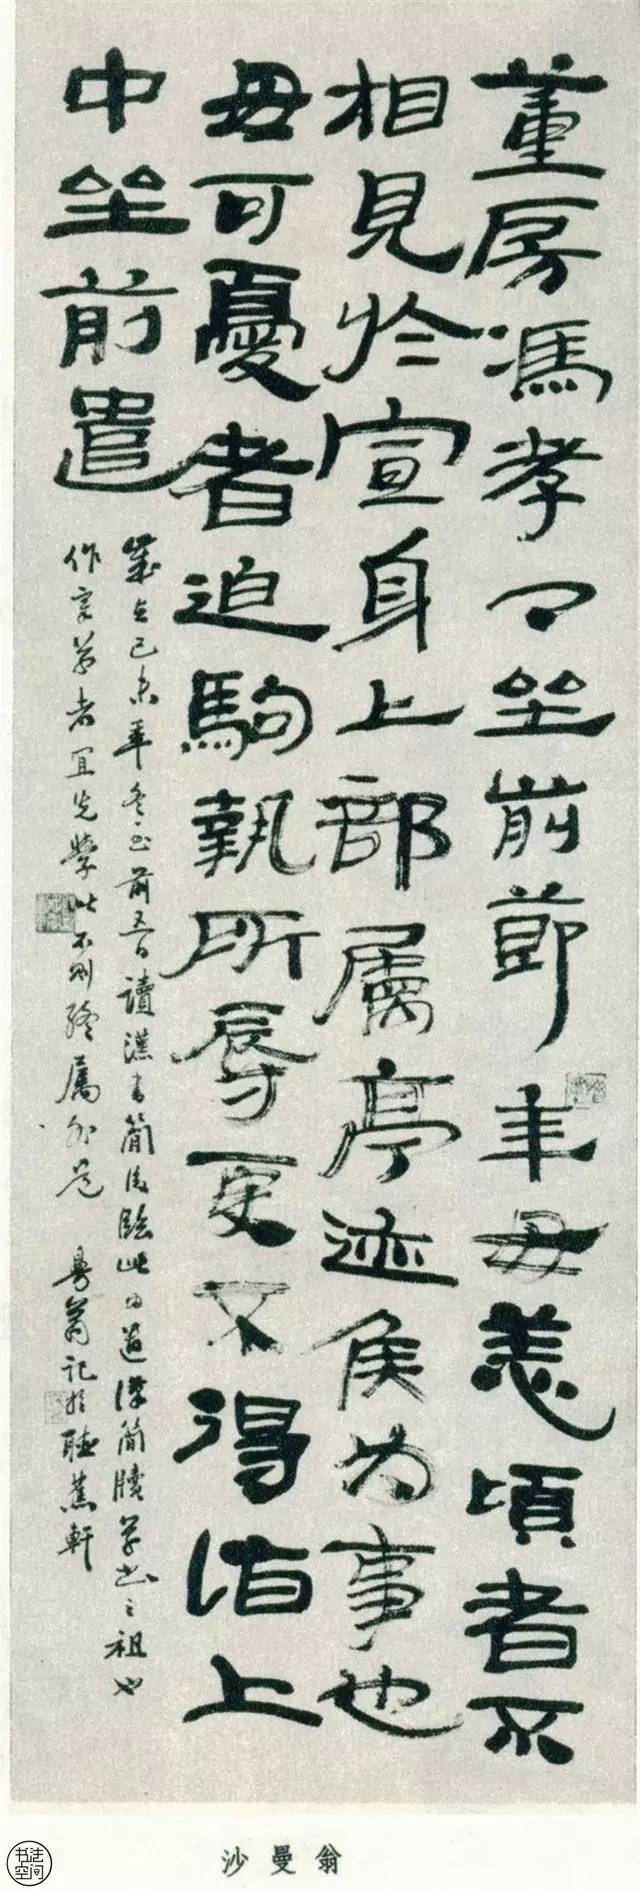 董房馮孝卿坐前萠年毋恙頃者不
相見於宣身上部屬亭迹候為事也
毋可憂者迫駒執所辱耍又不得諧上
中坐前遣
歲在己未年冬至前五日讀漢書簡後臨此因道漢簡牘草書之祖也
作章草者宜先學此不則終屬外道 曼翁記於聽蕉軒
沙曼翁
书法空间